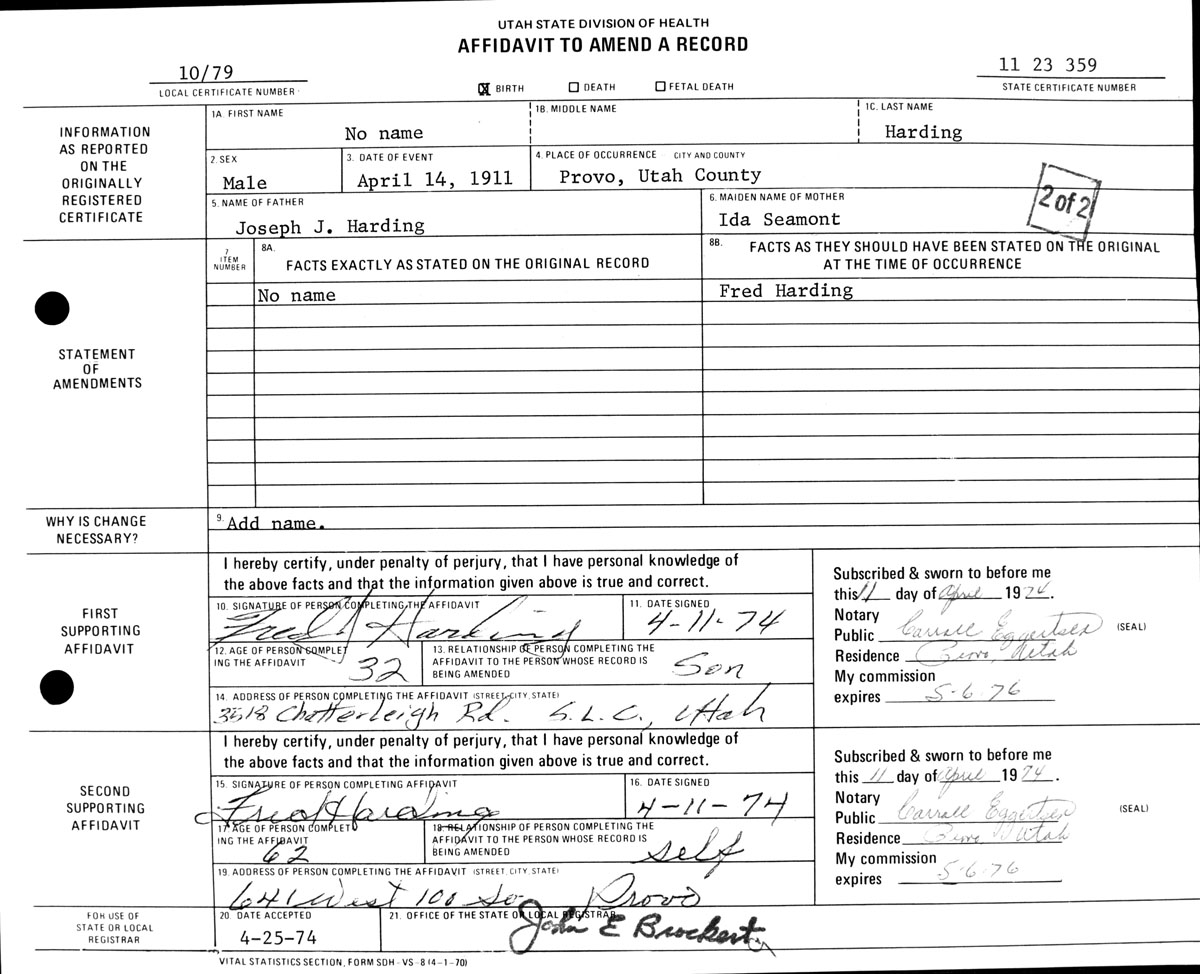 UTAH STATE DIVISION OF HEALTH
AFFIDAVIT TO AMEND A RECORD
10/79
LOCAL CERTIFICATE NUMBER
X BIRTH
DEATH
FETAL DEATH
11 23 359
STATE CERTIFICATE NUMBER
INFORMATION
AS REPORTED
ON THE
ORIGINALLY
REGISTERED
CERTIFICATE
1A. FIRST NAME
No name
1B. MIDDLE NAME
1C. LAST NAME
Harding
2. SEX
Male
3. DATE OF EVENT
April 14, 1911
4. PLACE OF OCCURRENCE - CITY AND COUNTY
Provo, Utah County
5. NAME OF FATHER
Joseph J. Harding
6. MAIDEN NAME OF MOTHER
Ida Seamont
2 of 2
STATEMENT
OF
AMENDMENTS
7
ITEM
NUMBER
8A.
FACTS EXACTLY AS STATED ON THE ORIGINAL RECORD
8B.
FACTS AS THEY SHOULD HAVE BEEN STATED ON THE ORIGINAL
AT THE TIME OF OCCURRENCE
No name
Fred Harding
WHY IS CHANGE
NECESSARY?
9. Add name.
FIRST
SUPPORTING
AFFIDAVIT
I hereby certify, under penalty of perjury, that I have personal knowledge of
the above facts and that the information given above is true and correct.
10. SIGNATURE OF PERSON COMPLETING THE AFFIDAVIT
Fred J Harding
11. DATE SIGNED
4-11-74
12. AGE OF PERSON COMPLET
ING THE AFFIDAVIT
32
13. RELATIONSHIP OF PERSON COMPLETING THE
AFFIDAVIT TO THE PERSON WHOSE RECORD IS
BEING AMENDED
Son
14. ADDRESS OF PERSON COMPLETING THE AFFIDAVIT (STREET, CITY, STATE)
3518 Chatterleigh Rd. S.L.C., Utah
Subscribed & sworn to before me
this 11 day of April 1974.
Notary
Public Carrall Eggertsen
(SEAL)
Residence Provo, Utah
My commission
expires 5-6-76
SECOND
SUPPORTING
AFFIDAVIT
I hereby certify, under penalty of perjury, that I have personal knowledge of
the above facts and that the information given above is true and correct.
15. SIGNATURE OF PERSON COMPLETING AFFIDAVIT
Fred Harding
16. DATE SIGNED
4-11-74
17. AGE OF PERSON COMPLET
ING THE AFFIDAVIT
62
18. RELATIONSHIP OF PERSON COMPLETING THE
AFFIDAVIT TO THE PERSON WHOSE RECORD IS
BEING AMENDED
self
19. ADDRESS OF PERSON COMPLETING THE AFFIDAVIT (STREET, CITY, STATE)
641 West 100 So Provo
Subscribed & sworn to before me
this 11 day of April 1974.
Notary
Public Carrall Eggertsen
(SEAL)
Residence Provo, Utah
My commission
expires 5-6-76
FOR USE OF
STATE OR LOCAL
REGISTRAR
20. DATE ACCEPTED
4-25-74
21. OFFICE OF THE STATE OR LOCAL REGISTRAR
John E Brockert
VITAL STATISTICS SECTION, FORM SDH-VS-8 (4-1-70)